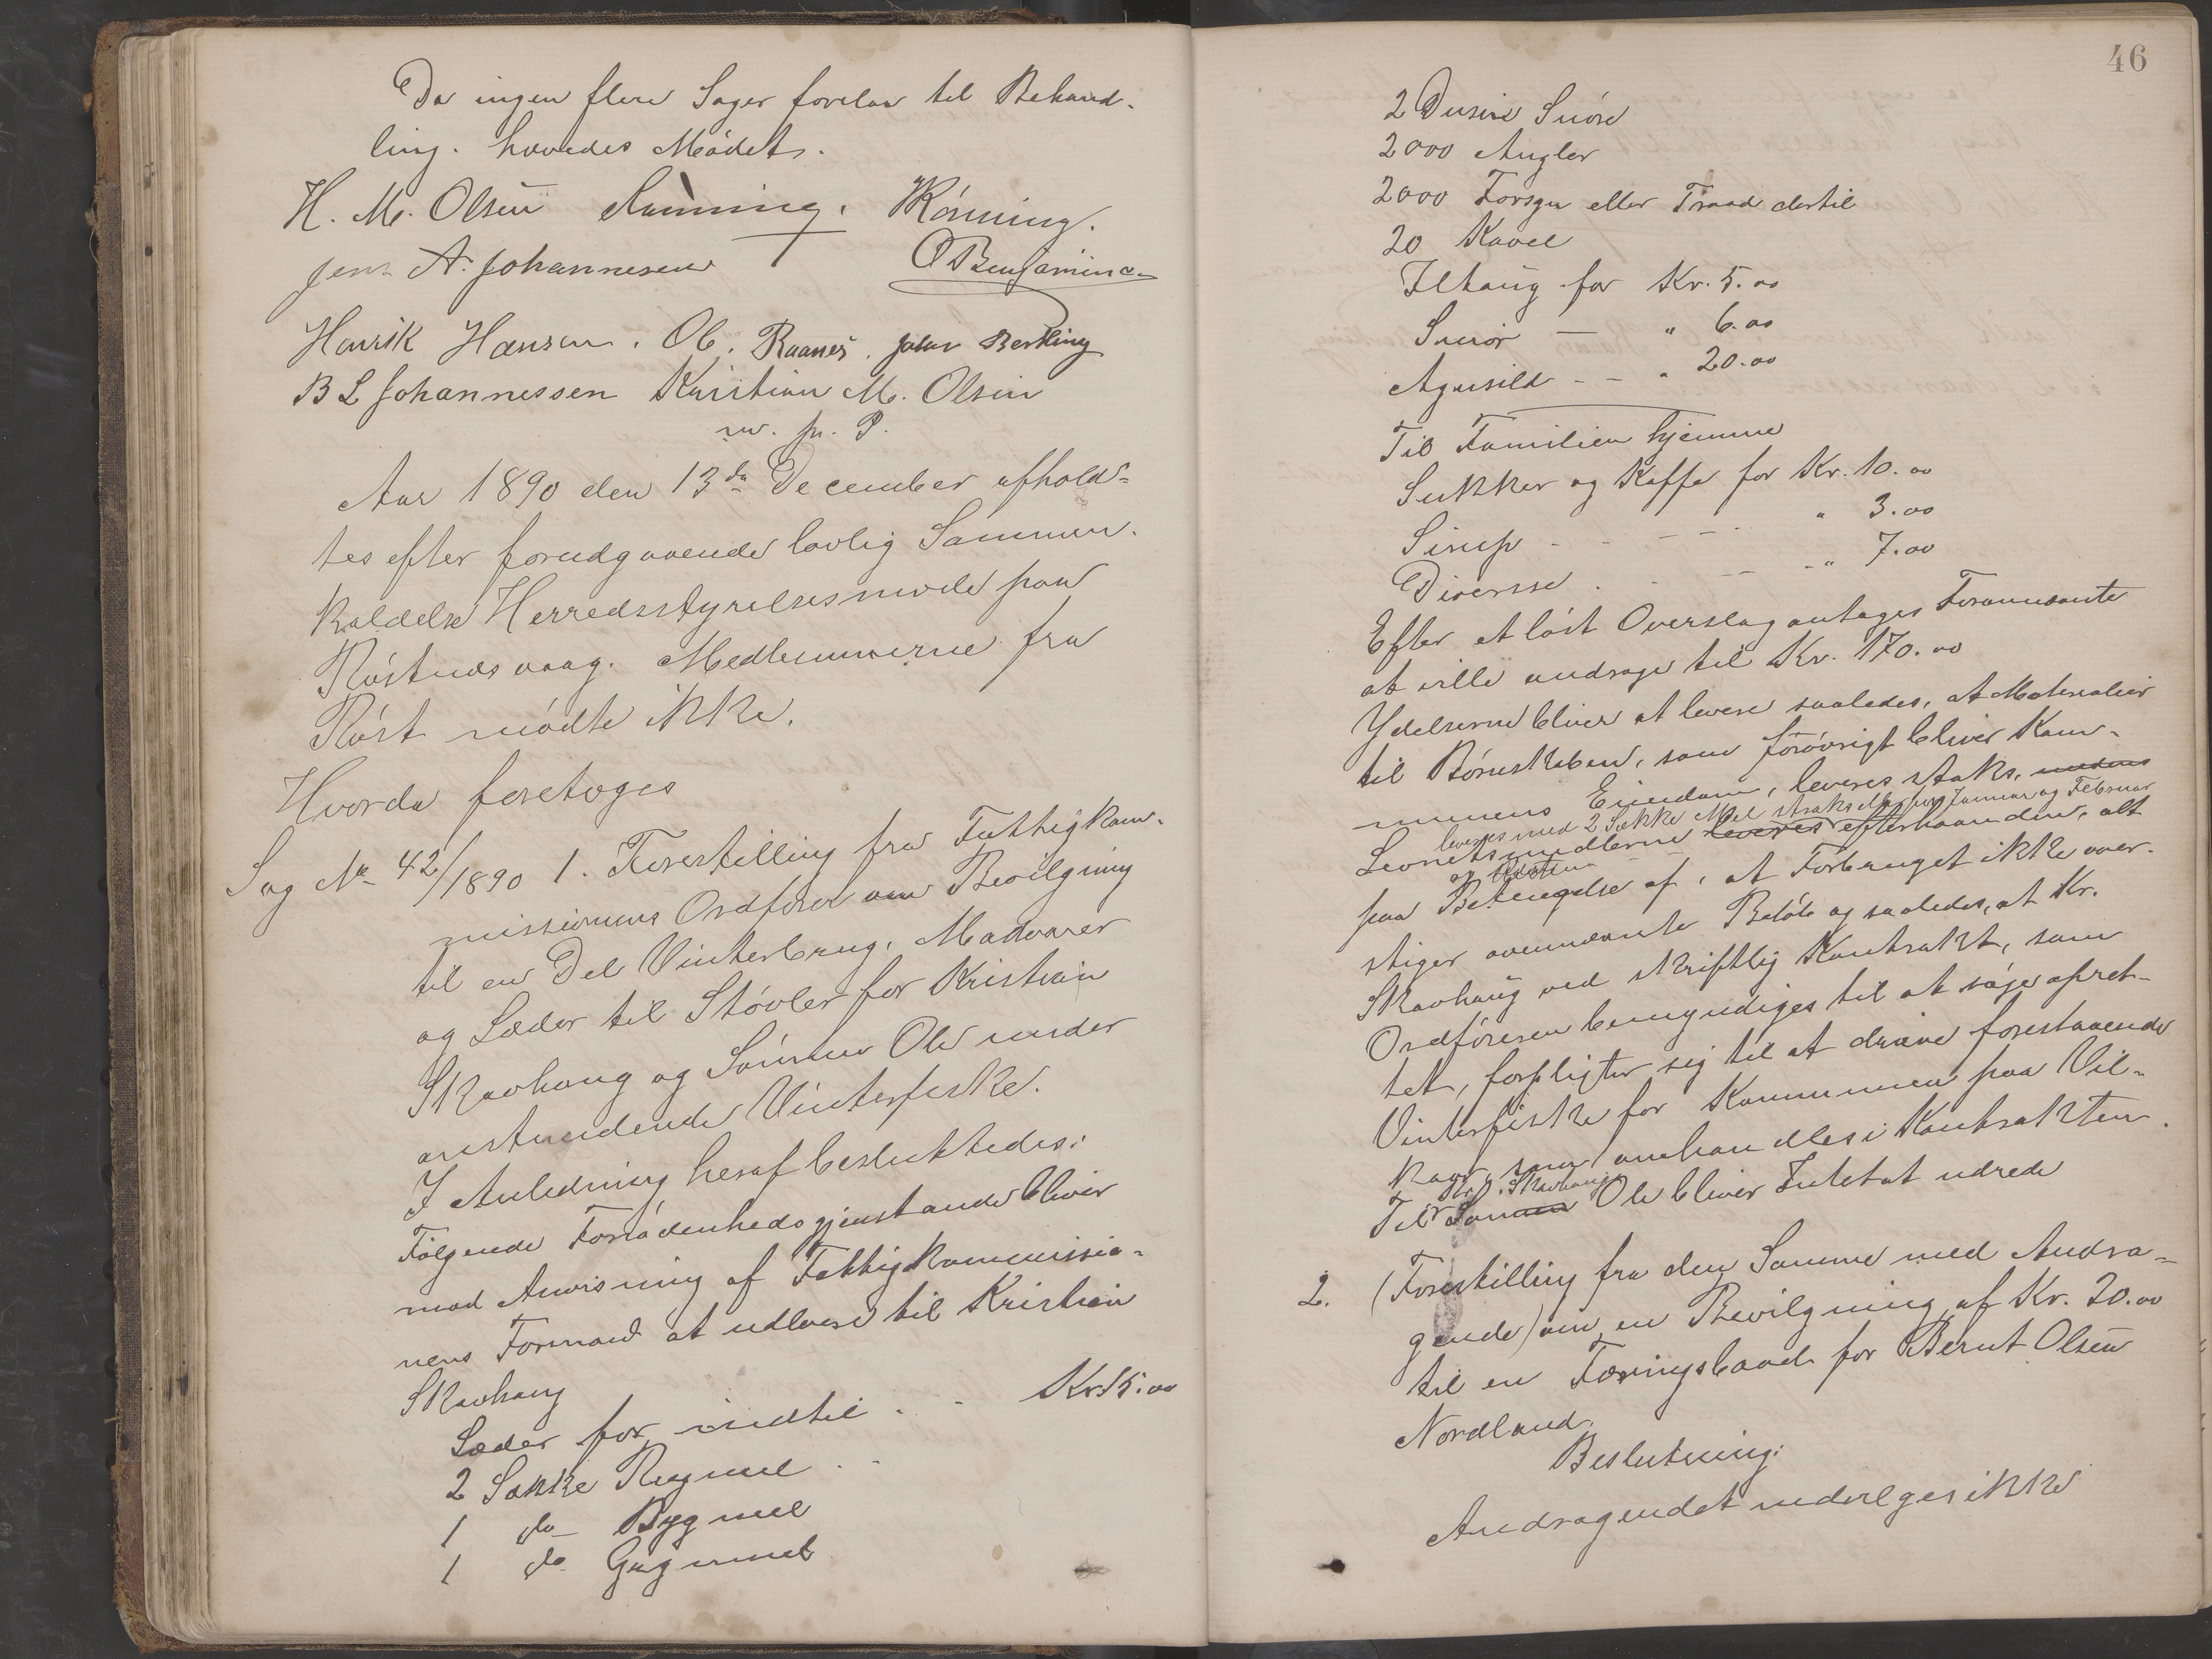 Da ingen flere Sager forelaa til Behand-
ling. hævedes Mødet.
H. M. Olsen Rønning.
Jens A. Johannesen OBenjaminsen
Henrik Hansen. Ol. Raanes. Johan Berthing
B L Johannessen Kristian M. Olsen
m. p. P.
Aar 1890 den 13de December afhold-
tes efter forudgaaende lovlig Sammen-
kaldelse Herredsstyrelsesmøde paa
Røstnesvaag. Medlemmerne fra
Røst mødte ikke.
Hvorda foretoges
Sag No 42/1890 1. Forestilling fra Fattigkom-
missionens Ordfører om Bevilgning
til en Del Vinterbrug, Madvarer
og Læder til Støvler for Kristian
Skavhaug og Sønnen Ole under
anstundende Vinterfiske.
I Anledning heraf besluttedes:
Følgende Fornødenhedsgjenstande bliver
mod Anvisning af Fattigkommissio-
nens Formand at udlevere til Kristian
Skavhaug
Læder for indtil . . Kr. 15.00
2 Sække Rugmel . .
1 do Bygmel
1 do Grynmel
46
2 Dusin Snøre
2000 Angler
2000 Forsyn eller Traad dertil
20 Kavel
Iltaug for Kr. 5.00
Smør — " 6.00
Agnsild - - " 20.00
Til Familien hjemme
Sukker og Kaffe for Kr. 10.00
Sirup - - - - " 3.00
Diversse . - - - " 7.00
Efter et løst Overslag antages Forannævnte
at ville andrage til Kr. 170.00
Ydelserne bliver at levere saaledes, at Materialier
til Børnskaben, som forøvrigt bliver Kom-
munens Eiendom, leveres straks, medens
leveres med 2 Sække Mel straks eller før Januar og Februar
Levnetsmidlerne leveres efterhaanden, alt
og Resten
paa Betingelse af, at Forbruget ikke over-
stiger ovennævnte Beløb og saaledes, at Kr.
Skavhaug ved skriftlig Kontrakt, som
Ordføreren bemyndiges til at søge opret-
tet, forpligter sig til at drive forestaaende
Vinterfiske for Kommunen paa Vil-
kaar, som omhandles i Kontrakten.
Kr. Skavhaug
Til Sønnen Ole bliver Intet at udrede
2. (Forestilling fra den Samme med Andra-
gende) om en Bevilgning af Kr. 20.00
til en Færingsbaad for Bernt Olsen
Nordland.
Beslutning:
Andragendet indvilges ikke